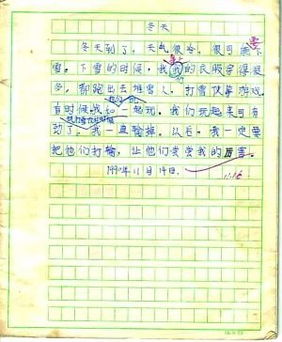 冬天
冬天到了，天气很冷，很可能下
雪。下雪的时候，我的衣服穿得很
多，都跑出去堆雪人，打雪仗等游戏
有时候我一起玩。我们玩起来可有
劲了。我一直输掉。以后，我一定要
把他们打输，让他们尝尝我的厉害。
11月14日.
11.16